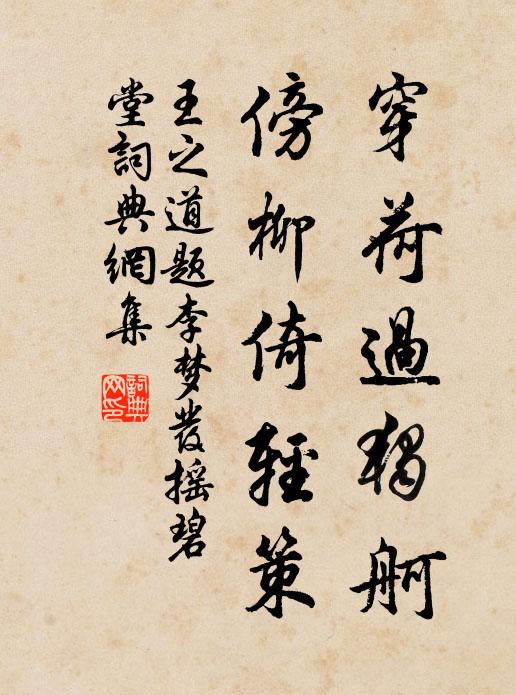 穿荷過獨舸
傍柳倚輕策
王之道題李梦發摇碧
堂詞典網集
詞典
网印